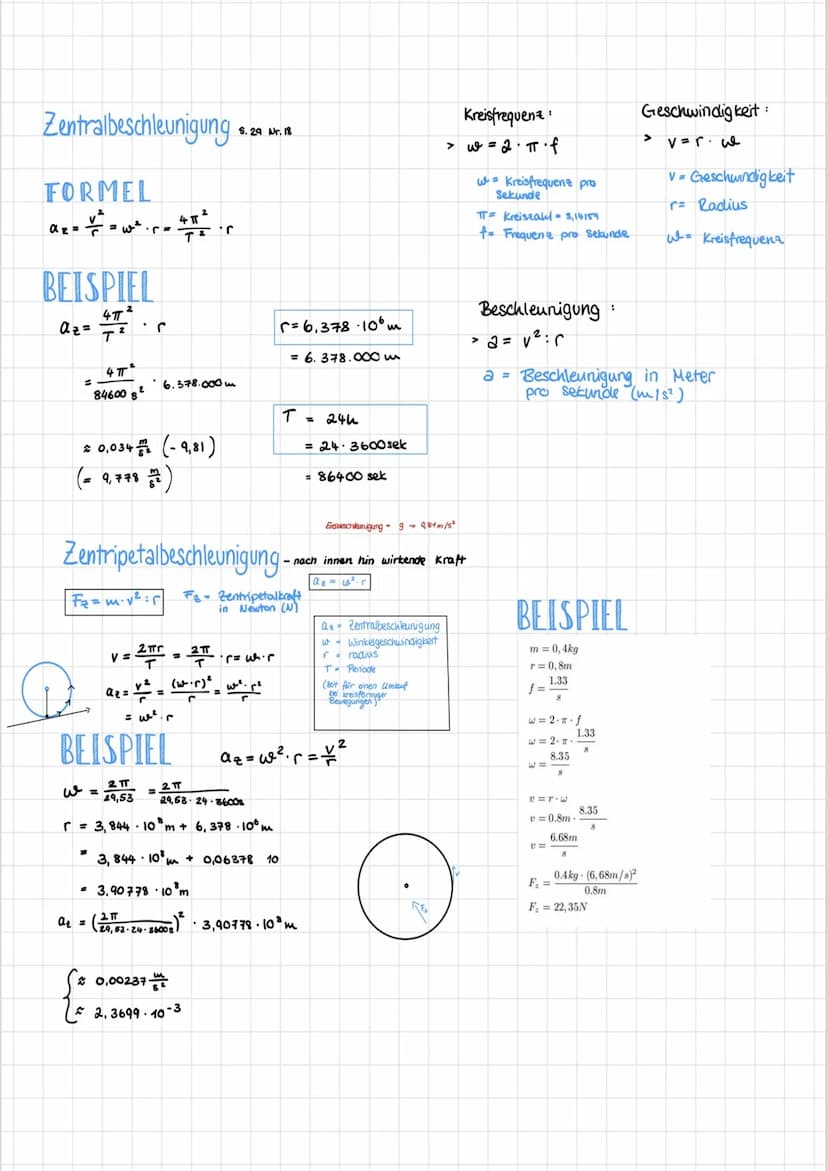 Zentralbeschleunigung S. 29 Nr. 18
FORMEL
a_z = v²/r = ω² · r = 4π²/T² · r
BEISPIEL
a_z = 4π²/T² · r
= 4π²/84600 s² · 6.378.000m
≈ 0,034 m/s² (- 9,81)
(= 9,778 m/s²)
r = 6,378 · 10⁶ m
= 6.378.000 m
T = 24h
= 24 · 3600sek
= 86400 sek
Kreisfrequenz :
> ω = 2 · π · f
ω = Kreisfrequenz pro
Sekunde
π = Kreiszahl = 3,14159
f = Frequenz pro Sekunde
Geschwindigkeit :
> v = r · ω
v = Geschwindigkeit
r = Radius
ω = Kreisfrequenz
Beschleunigung :
> a = v² : r
a = Beschleunigung in Meter
pro Sekunde (m/s²)
= g → 9,81 m/s²
Zentripetalbeschleunigung - nach innen hin wirkende Kraft
a_z = ω² · r
F_z = m · v² : r
F_z = Zentripetalkraft
in Newton (N)
v = 2πr/T = 2π/T · r = ω · r
a_z = v²/r = (ω · r)²/r = ω² · r²/r
= ω² · r
a_z = Zentralbeschleunigung
ω = Winkelgeschwindigkeit
r = radius
T = Periode
(Zeit für einen Umlauf
bei kreisförmiger
Bewegungen)
BEISPIEL
a_z = ω² · r = v²/r
ω = 2π/29,53 = 2π/29,53 · 24 · 3600s
r = 3,844 · 10⁸ m + 6,378 · 10⁶ m
= 3,844 · 10⁸ m + 0,06378 10
= 3.90778 · 10⁸ m
a_z = (2π/29,53 · 24 · 3600s)² · 3,90778 · 10⁸ m
≈ 0,00237 m/s²
≈ 2,3699 · 10⁻³
v
F_z
BEISPIEL
m = 0,4kg
r = 0,8m
f = 1.33/s
ω = 2 · π · f
ω = 2 · π · 1.33/s
ω = 8.35/s
v = r · ω
v = 0.8m · 8.35/s
v = 6.68m/s
F_z = 0.4kg · (6,68m/s)²/0.8m
F_z = 22,35N